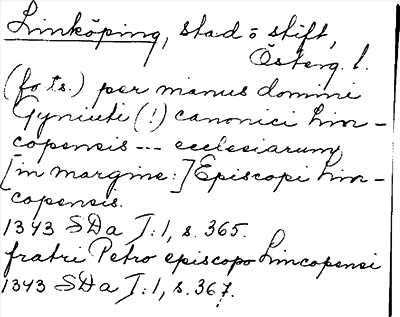 Linköping, stad o stift,
Österg. l.
(forts.) per manus domini
Gyniuti (!) canonici Lin-
copensis --- ecclesiarum
[in margine:] Episcopi Lin-
copensis.
1343 SDa I:1, s. 365.
fratri Petro episcopo Lincopensi
1343 SDa I:1, s. 367.